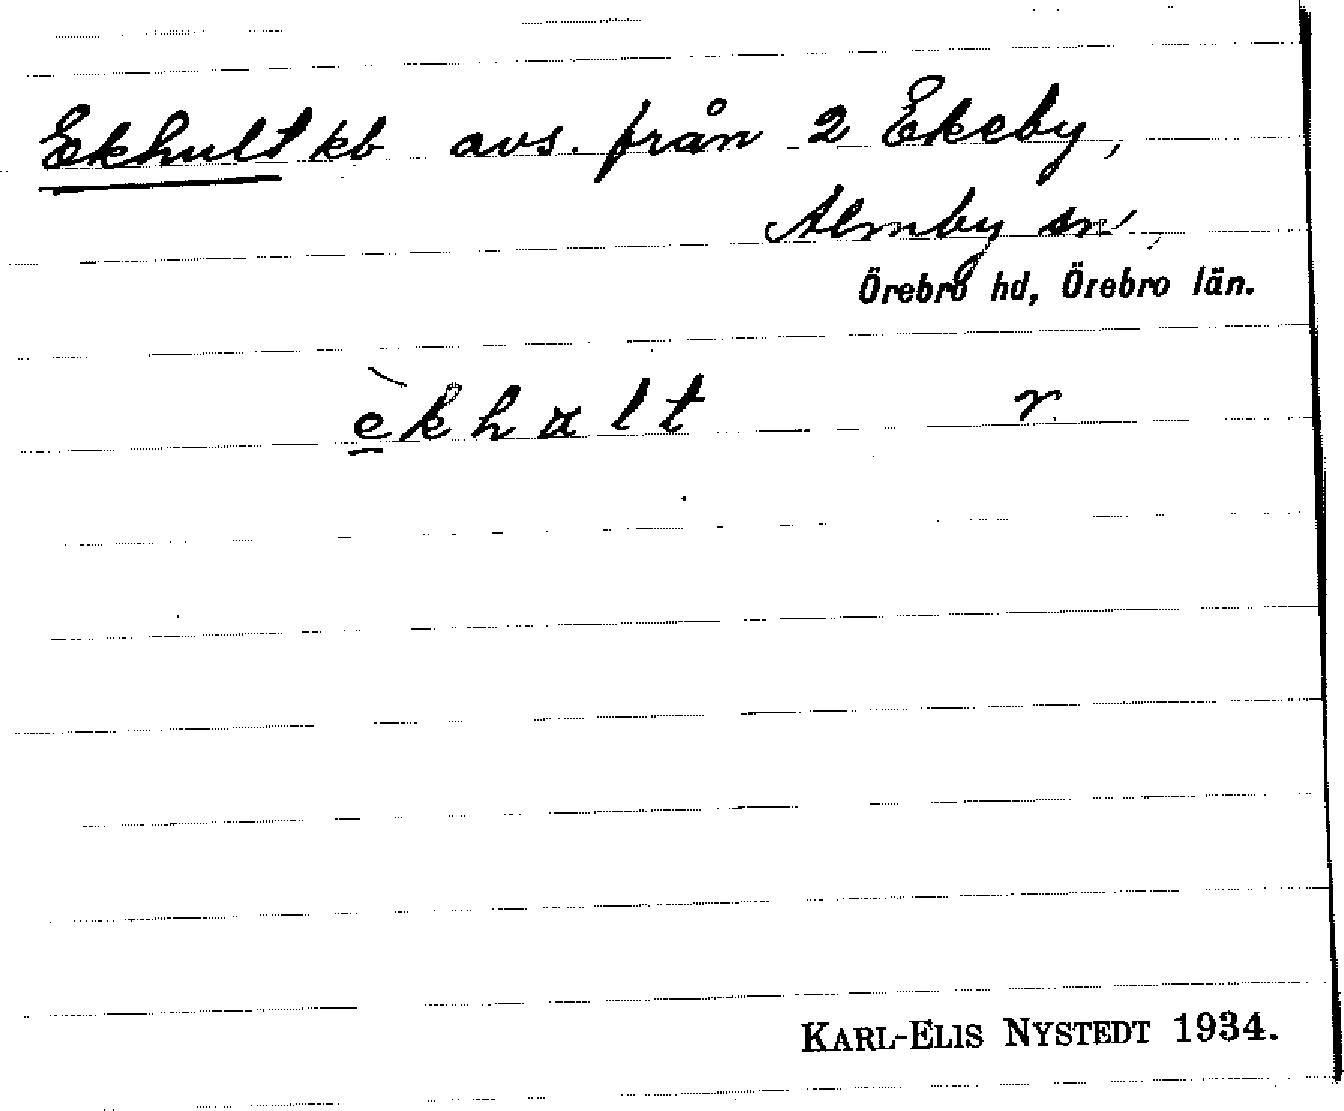 Ekhult kb avs. från 2 Ekeby,
Almby sn,
Örebro hd, Örebro län.
èkhalt r
KARL-ELIS NYSTEDT 1934.